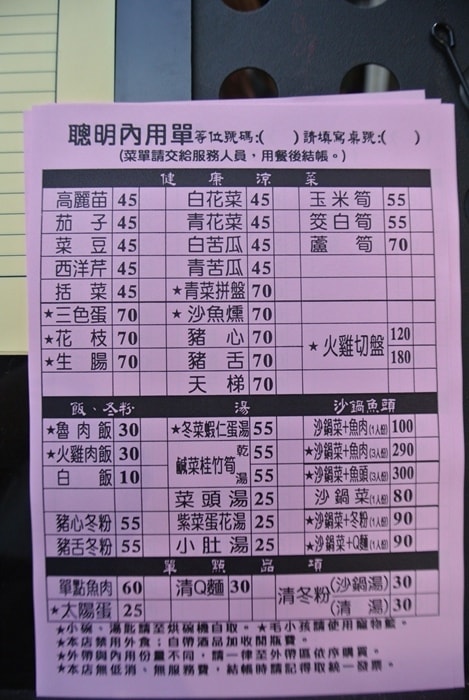 聰明內用單 等位號碼:( ) 請填寫桌號:( )
(菜單請交給服務人員，用餐後結帳。)
健康涼菜
高麗苗 45 白花菜 45 玉米筍 55
茄子 45 青花菜 45 筊白筍 55
菜豆 45 白苦瓜 45 蘆筍 70
西洋芹 45 青苦瓜 45
括菜 45 ★青菜拼盤 70
★三色蛋 70 ★沙魚燻 70
★花枝 70 豬心 70 ★火雞切盤 120
★生腸 70 豬舌 70 180
天梯 70
飯、冬粉 湯 沙鍋魚頭
★魯肉飯 30 ★冬菜蝦仁蛋湯 55 沙鍋菜+魚肉(1人份) 100
★火雞肉飯 30 鹹菜桂竹筍 乾 55 ★沙鍋菜+魚肉(3人份) 290
白飯 10 湯 55 ★沙鍋菜+魚頭(3人份) 300
菜頭湯 25 沙鍋菜(1人份) 80
豬心冬粉 55 紫菜蛋花湯 25 ★沙鍋菜+冬粉(1人份) 90
豬舌冬粉 55 小肚湯 25 ★沙鍋菜+Q麵(1人份) 90
單點品項
單點魚肉 60 清Q麵 30 清冬粉 (沙鍋湯) 30
★太陽蛋 25 (清湯) 30
★小碗、湯匙請至烘碗機自取。★毛小孩請使用寵物籃。
★本店禁用外食；自帶酒品加收開瓶費。
★外帶與內用份量不同，請一律至外帶區依序購買。
★本店無低消、無服務費，結帳時請記得取統一發票。